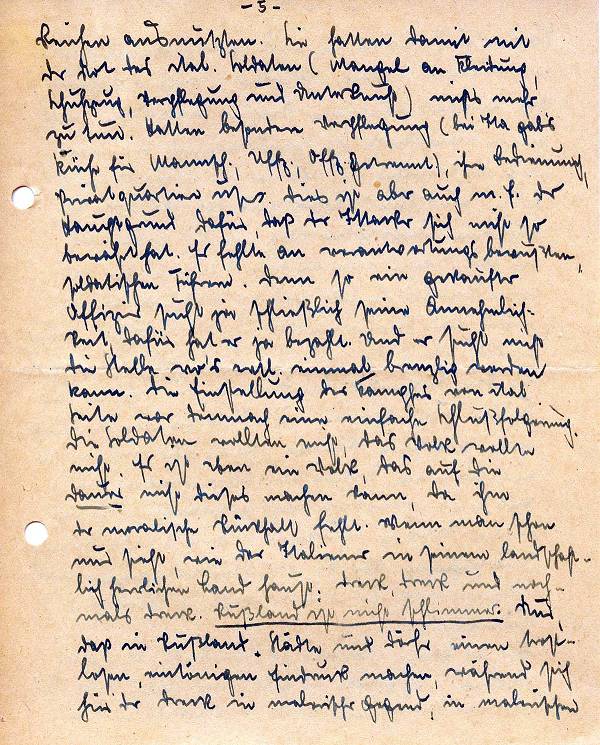 - 5 -
Reichen ausnutzten. Sie hatten damit mit
der Not des ital. Soldaten (Mangel an Kleidung,
Schuhzeug, Verpflegung und Unterkunft) nichts mehr
zu tun. Hatten besondere Verpflegung (bei Ita gab's
Küche für Mannsch., Uffz., Offz. getrennt), ihre Bedienung,
Privatquartier usw. Dies ist aber auch m. E. der
Hauptgrund dafür, daß der Italiener sich nicht so
bewährt hat. Es fehlte an verantwortungsbewußten,
soldatischen Führern. Denn so ein gekaufter
Offizier sucht ja schließlich seine Annehmlich-
keit, dafür hat er ja bezahlt. Und er sucht nicht
die Stelle wo's evtl. einmal brenzlig werden
kann. Die Einstellung des Kampfes von ital
Seite war demnach eine einfache Schlußfolgerung.
Die Soldaten wollten nicht, das Volk wollte
nicht. Es ist eben ein Volk, das auf die
Dauer nicht dieses machen kann, da ihm
der moralische Rückhalt fehlt. Wenn man schon
nur sieht, wie der Italiener in seinem landschaft-
lich herrlichen Land haust: Dreck, Dreck und noch-
mals Dreck. Rußland ist nicht schlimmer. Nur,
daß in Rußland Städte und Dörfer einen trost-
losen, eintönigen Eindruck machen, während sich
hier der Dreck in malerischer Gegend, in malerischen